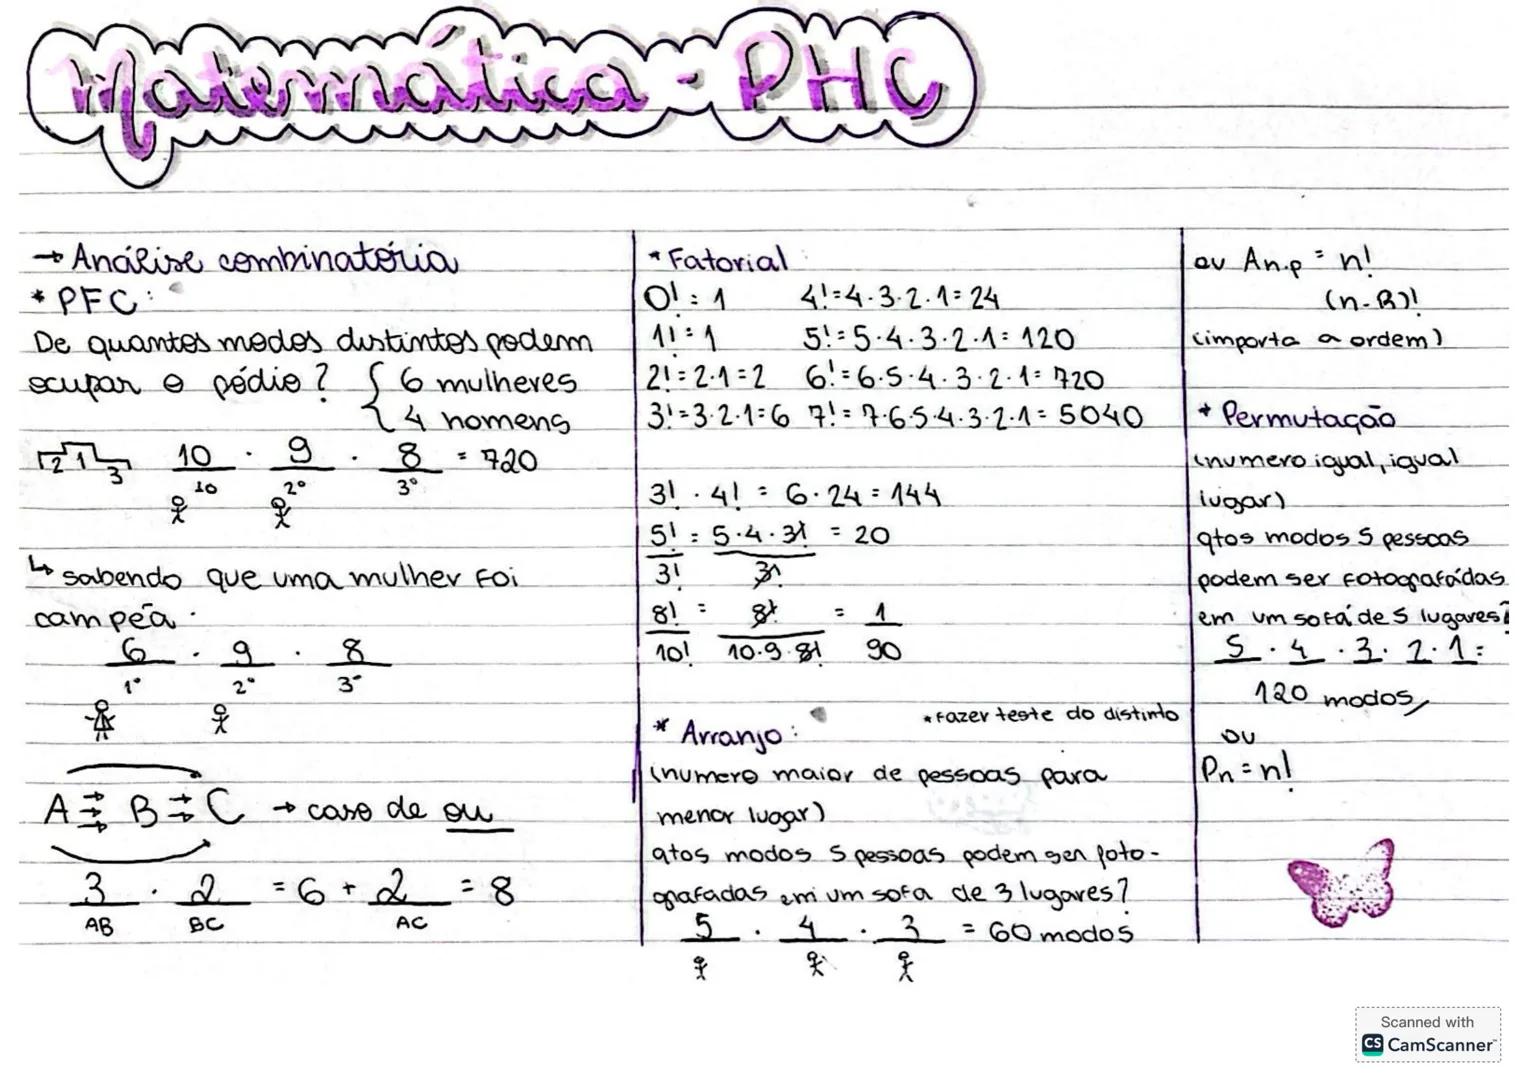 Matemática - PHC
→ Análise combinatória
* PFC:
De quantos modos distintos podem
ocupar o pódio? { 6 mulheres
4 homens
2 1 3 10 . 9 . 8 = 720
1º 2º 3º
↳ sabendo que uma mulher foi
campeã:
6 . 9 . 8
1º 2º 3º
A ⇉ B ⇉ C → caso de ou
3 . 2 = 6 + 2 = 8
AB BC AC
* Fatorial:
0! = 1 4! = 4.3.2.1 = 24
1! = 1 5! = 5.4.3.2.1 = 120
2! = 2.1 = 2 6! = 6.5.4.3.2.1 = 720
3! = 3.2.1 = 6 7! = 7.6.5.4.3.2.1 = 5040
3! . 4! = 6 . 24 = 144
5! = 5.4.3! = 20
3! 3!
8! = 8! = 1
10! 10.9.8! 90
* fazer teste do distinto
* Arranjo:
(numero maior de pessoas para
menor lugar)
qtos modos 5 pessoas podem ser foto-
grafadas em um sofa de 3 lugares?
5 . 4 . 3 = 60 modos
ou An.p = n!
(n-P)!
(importa a ordem)
* Permutação
(numero igual, igual
lugar)
qtos modos 5 pessoas
podem ser fotografádas
em um sofá de 5 lugares?
5 . 4 . 3 . 2 . 1 =
120 modos
ou
Pn = n!
Scanned with
CS CamScanner